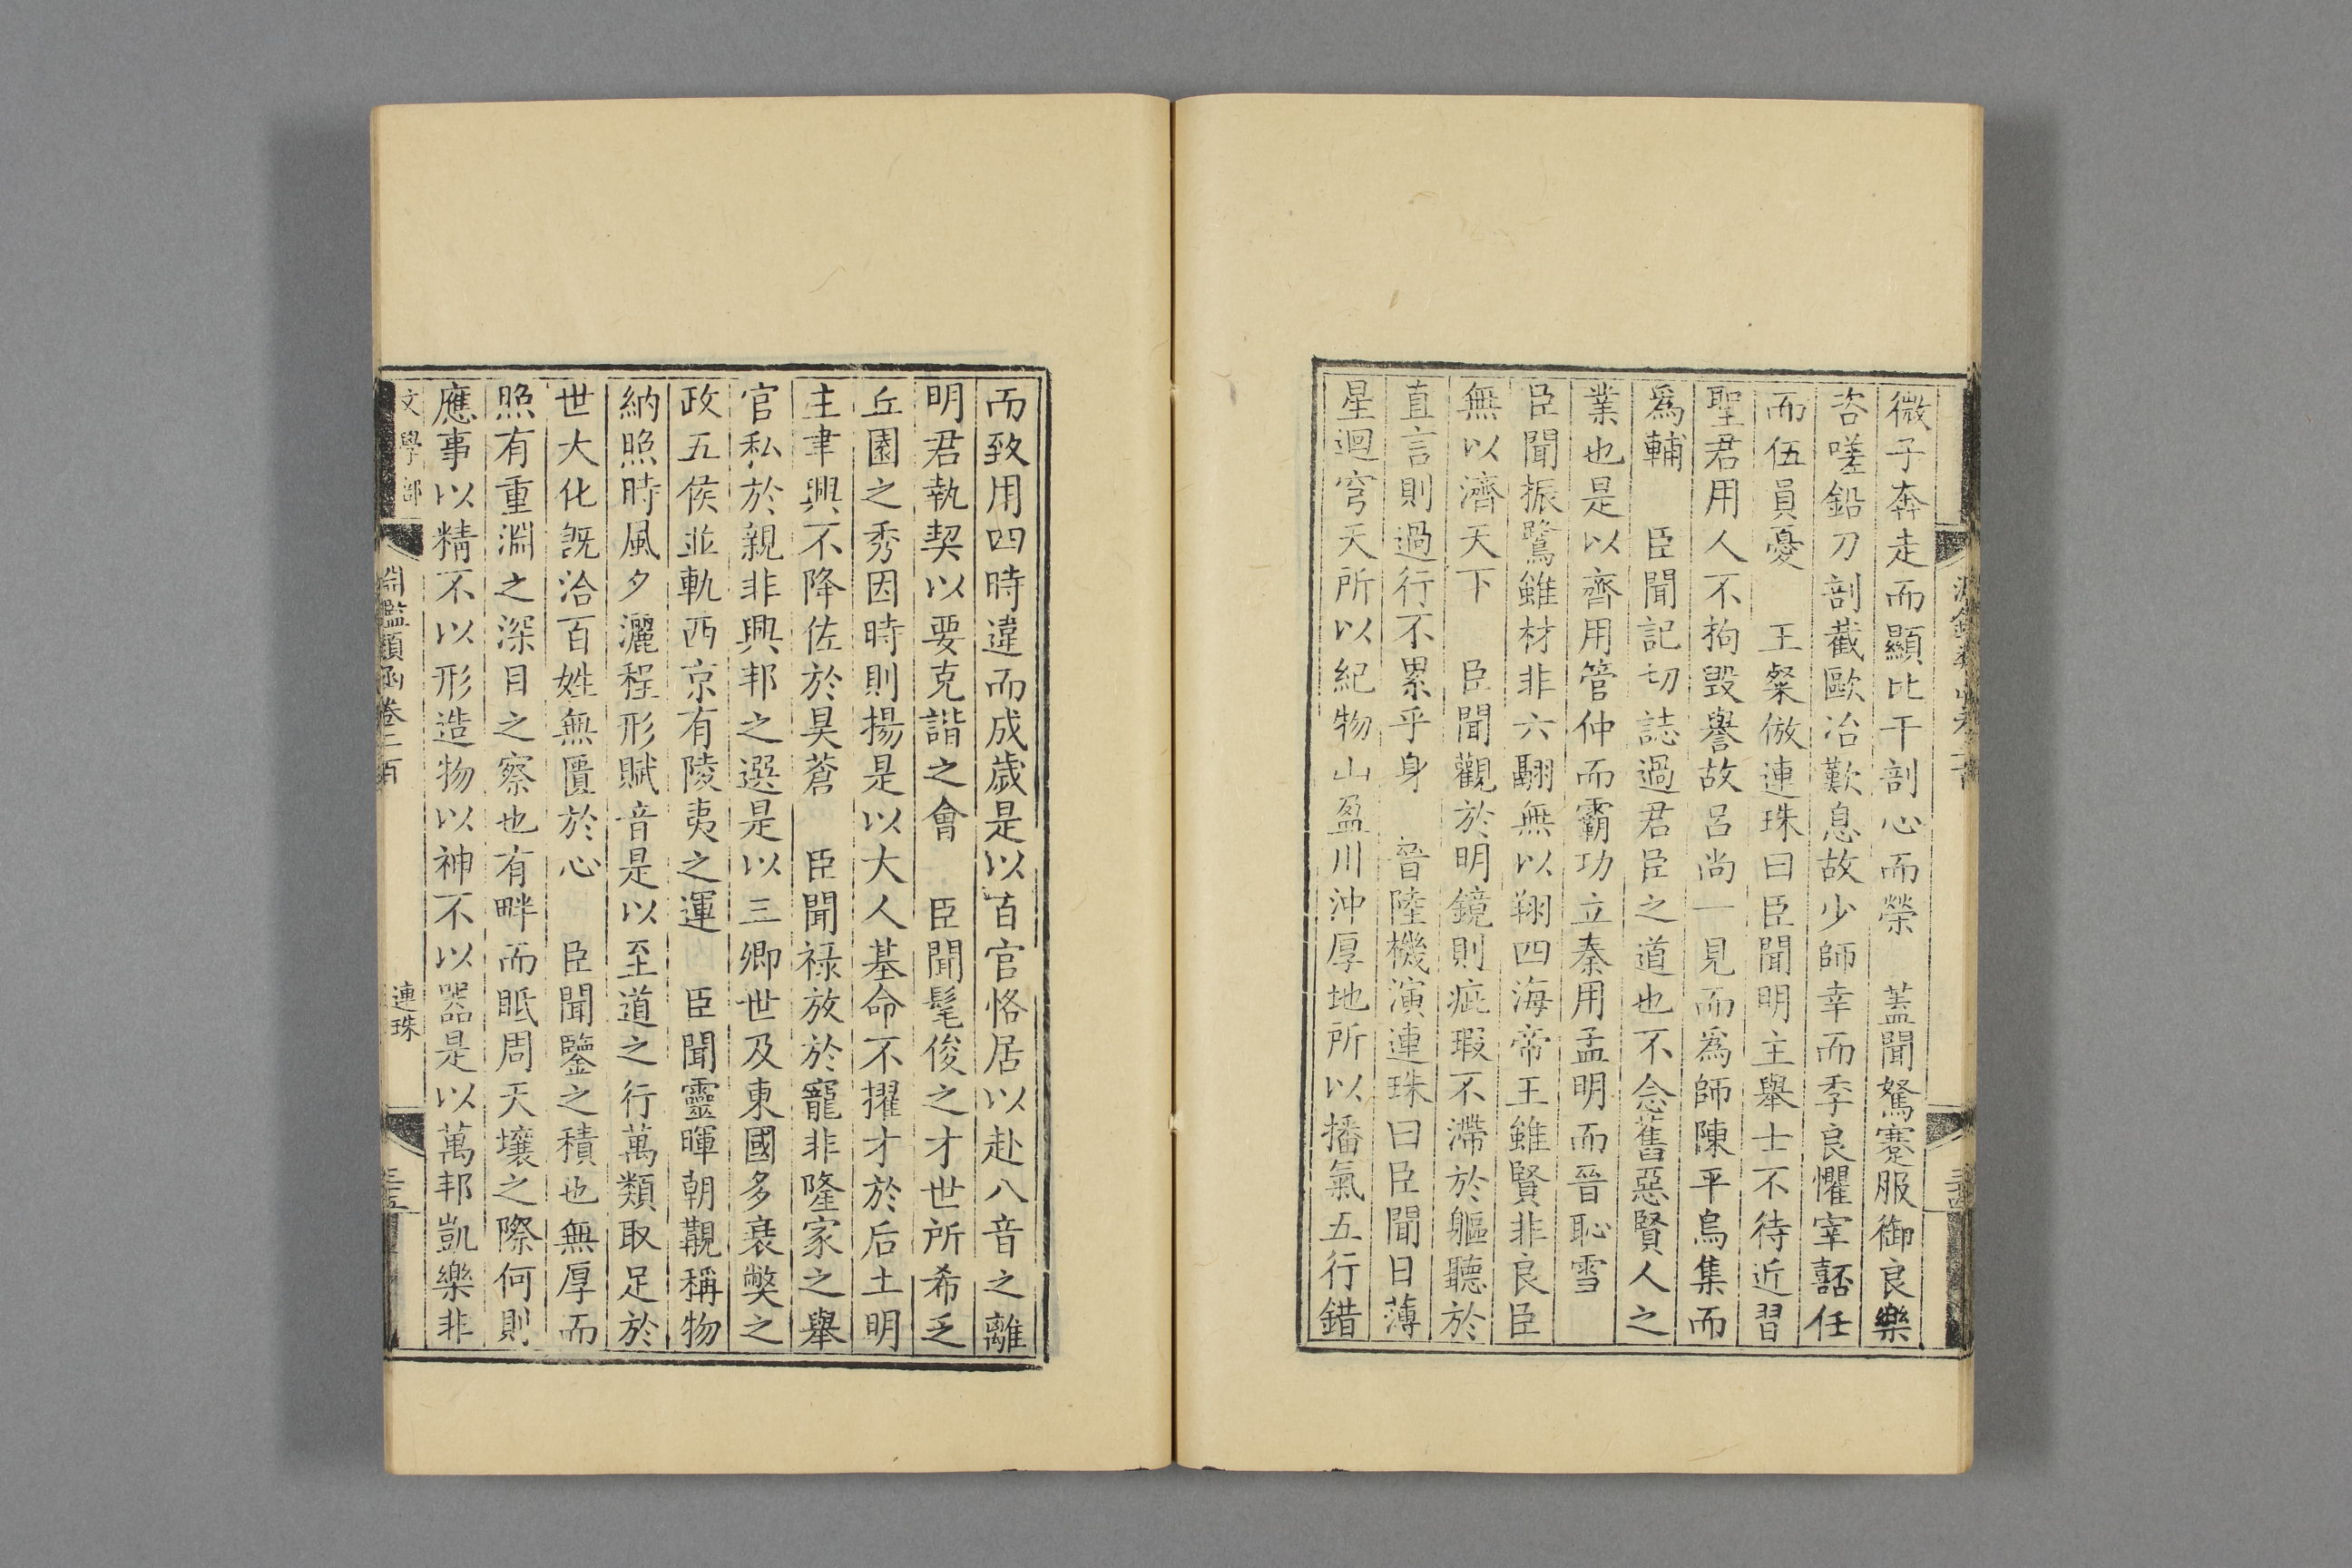 微子奔走而顯比干剖心而榮　蓋聞駑蹇服御良樂
咨嗟鉛刀剖截歐冶歎息故少師幸而季良懼宰嚭任
而伍員憂　王粲倣連珠曰臣聞明主舉士不待近習
聖君用人不拘毀譽故呂尚一見而爲師陳平烏集而
爲輔　臣聞記切誌過君臣之道也不念舊惡賢人之
業也是以齊用管仲而霸功立秦用孟明而晉恥雪
臣聞振鷺雖材非六翮無以翔四海帝王雖賢非良臣
無以濟天下　臣聞觀於明鏡則疵瑕不滯於軀聽於
直言則過行不累乎身　晉陸機演連珠曰臣聞日薄
星迴穹天所以紀物山盈川沖厚地所以播氣五行錯
而致用四時違而成歲是以百官恪居以赴八音之離
明君執契以要克諧之會　臣聞髦俊之才世所希乏
丘園之秀因時則揚是以大人基命不擢才於后土明
主聿興不降佐於昊蒼　臣聞祿放於寵非隆家之舉
官私於親非興邦之選是以三卿世及東國多衰獘之
政五侯並軌西京有陵夷之運　臣聞靈暉朝覯稱物
納照時風夕灑程形賦音是以至道之行萬類取足於
世大化旣洽百姓無匱於心　臣聞鑒之積也無厚而
照有重淵之深目之察也有畔而眡周天壤之際何則
應事以精不以形造物以神不以器是以萬邦凱樂非
文學部
淵鑑類函卷二百
連珠